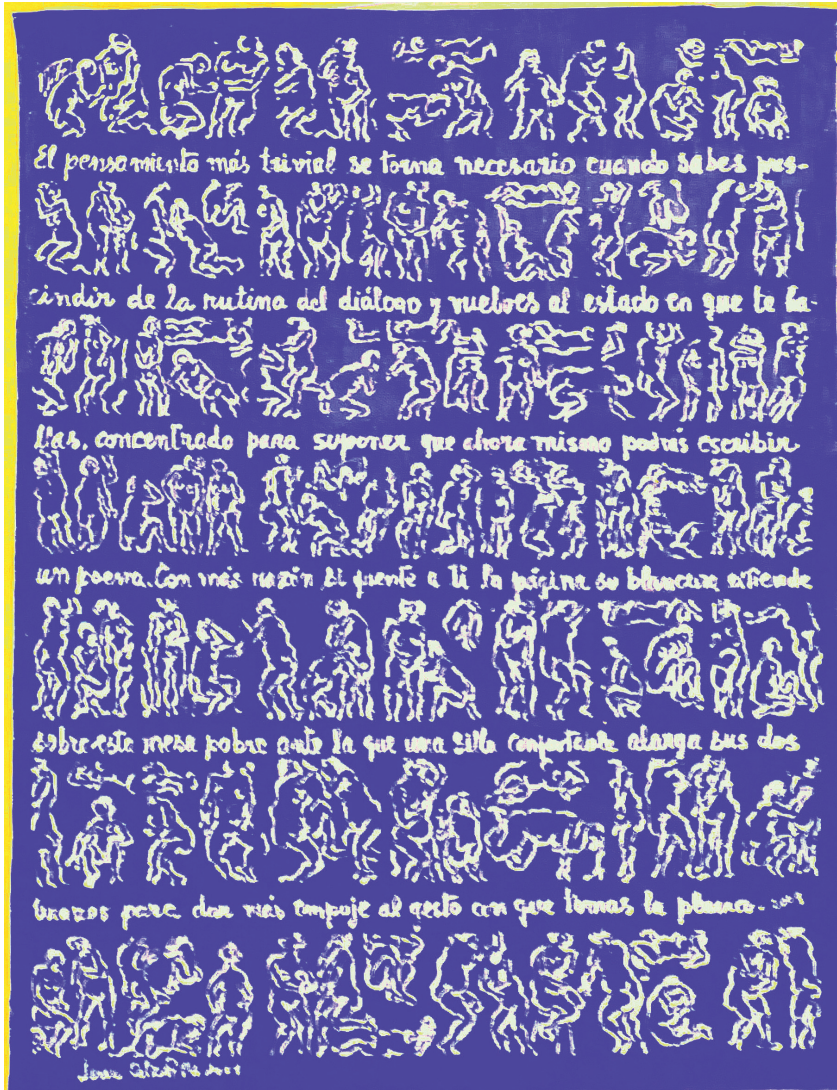 El pensamiento más trivial se torna necesario cuando sabes pres-
cindir de la rutina del diálogo y vuelves al estado en que te ha-
llas, concentrado para suponer que ahora mismo podrás escribir
un poema. Con más razón si frente a ti la página su blancura extiende
sobre esta mesa pobre ante la que una silla confortable alarga sus dos
brazos para dar más empuje al gesto con que tomas la pluma.
Juan